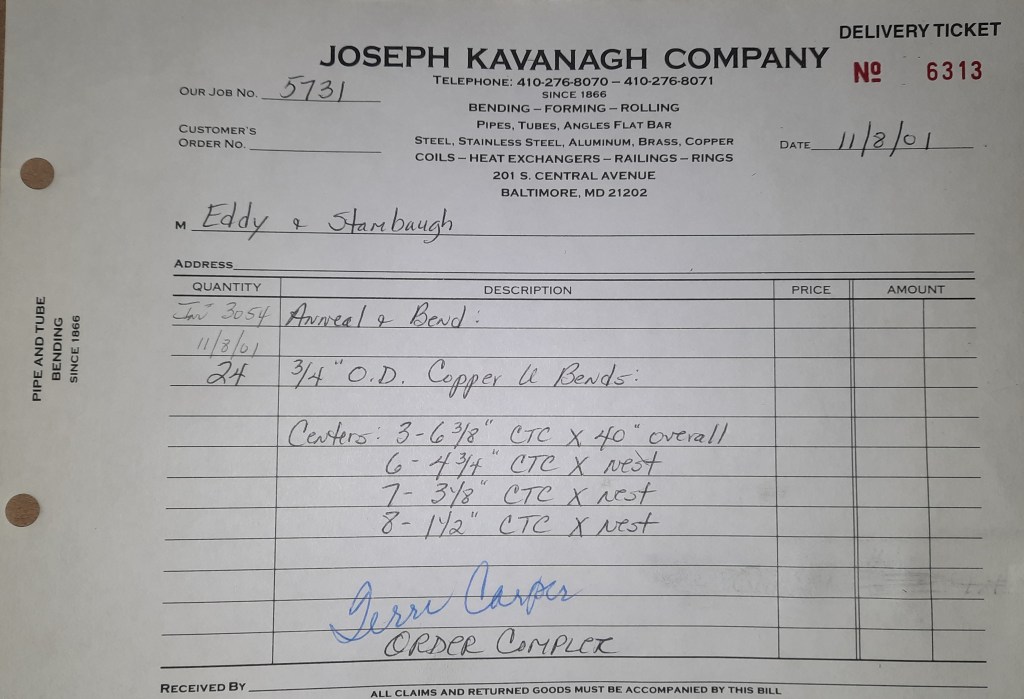 DELIVERY TICKET
JOSEPH KAVANAGH COMPANY
Nº 6313
TELEPHONE: 410-276-8070 – 410-276-8071
SINCE 1866
OUR JOB NO. 5731
BENDING – FORMING – ROLLING
PIPES, TUBES, ANGLES FLAT BAR
CUSTOMER'S
ORDER NO.
STEEL, STAINLESS STEEL, ALUMINUM, BRASS, COPPER
DATE 11/8/01
COILS – HEAT EXCHANGERS – RAILINGS – RINGS
201 S. CENTRAL AVENUE
BALTIMORE, MD 21202
M Eddy & Stambaugh
ADDRESS
QUANTITY DESCRIPTION PRICE AMOUNT
Inv 3054 Anneal & Bend:
11/8/01
24 3/4" O.D. Copper U Bends:
Centers: 3 - 6 3/8" CTC X 40" overall
6 - 4 3/4" CTC X nest
7 - 3 1/8" CTC X nest
8 - 1 1/2" CTC X nest
Terri Carper
ORDER COMPLET
RECEIVED BY
ALL CLAIMS AND RETURNED GOODS MUST BE ACCOMPANIED BY THIS BILL
PIPE AND TUBE
BENDING
SINCE 1866